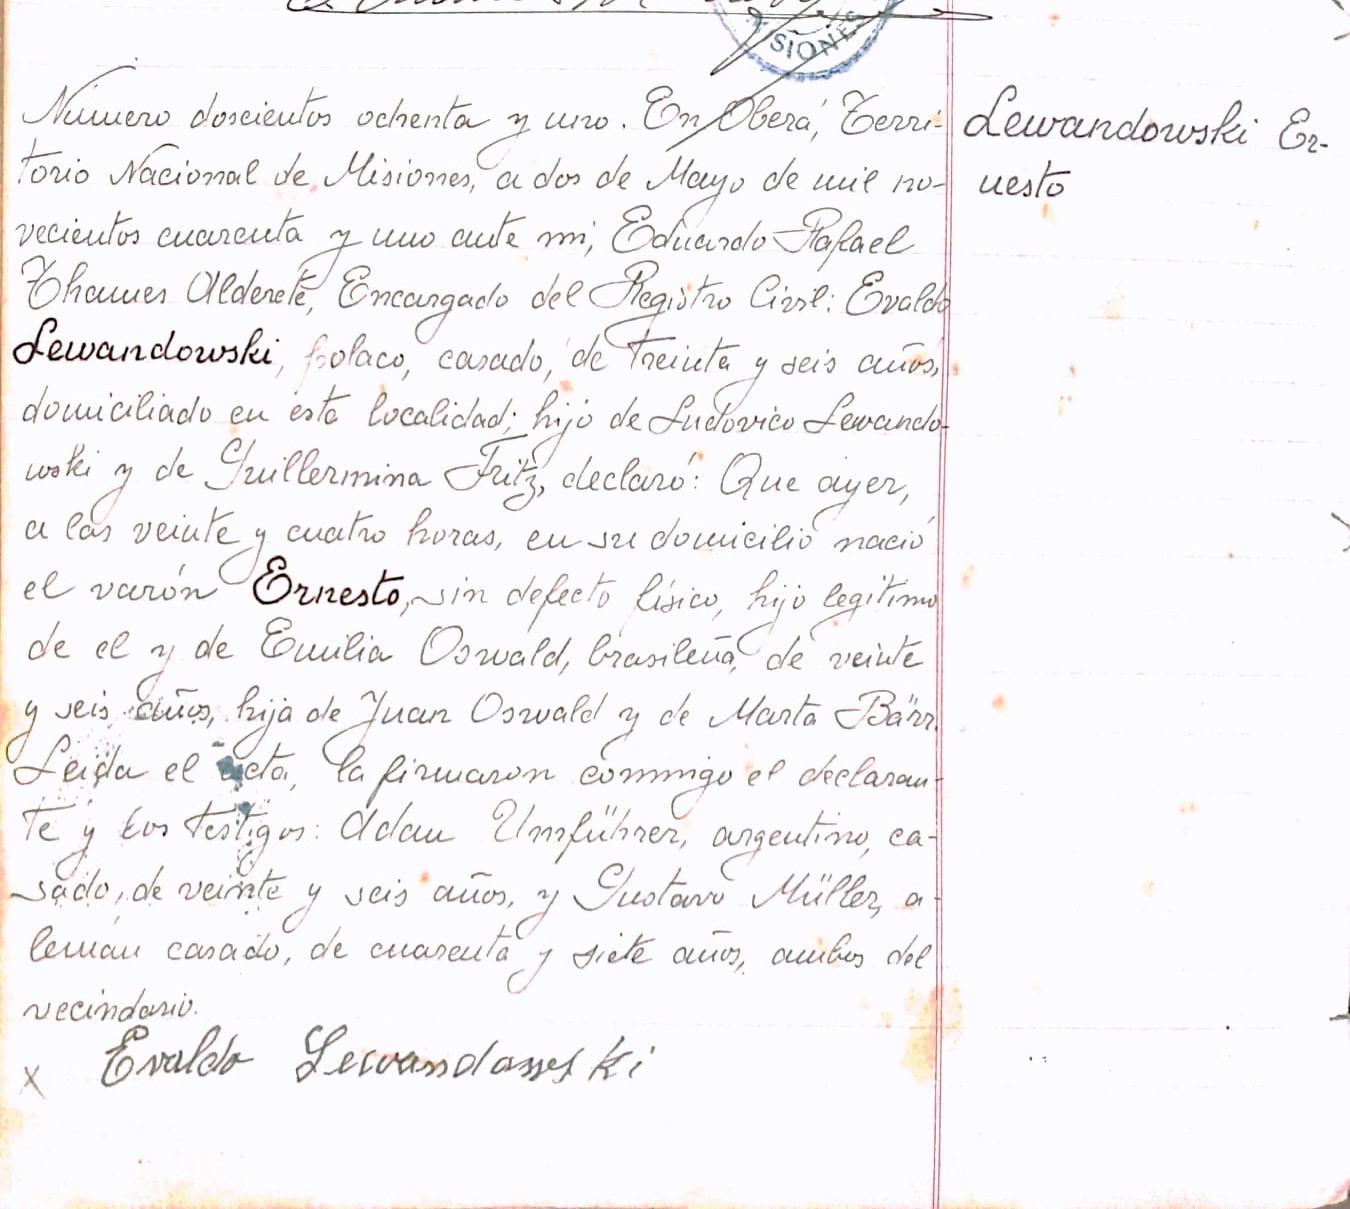 MISIONES
Número doscientos ochenta y uno. En Oberá, Terri-
torio Nacional de Misiones, a dos de Mayo de mil no-
vecientos cuarenta y uno ante mi, Eduardo Rafael
Thames Alderete, Encargado del Registro Civil: Evaldo
Lewandowski, polaco, casado, de treinta y seis años,
domiciliado en esta localidad; hijo de Ludovico Lewando-
wski y de Guillermina Fritz, declaró: Que ayer,
a las veinte y cuatro horas, en su domicilio nació
el varón Ernesto, sin defecto físico, hijo legítimo
de el y de Emilia Oswald, brasileña, de veinte
y seis años, hija de Juan Oswald y de Marta Bärr.
Leída el acta, la firmaron conmigo el declaran-
te y los testigos: Adan Umführer, argentino, ca-
sado, de veinte y seis años, y Gustavo Müller, a-
lemán casado, de cuarenta y siete años, ambos del
vecindario.
x Evaldo Lewandowski
Lewandowski Er-
nesto